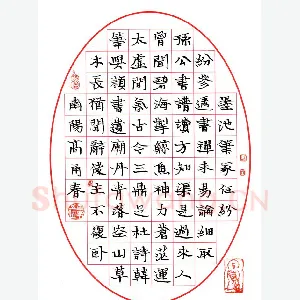 墨池筆冢任紛
紛參透書禪未易論細取
孫公書譜讀方知渠是過來人
曾聞碧海掣鯨魚神力蒼茫運
太虛間氣古今三鼎足杜詩韓
筆與顏書遺廟丹青落空山草
木長猶聞辭後主不復臥
南陽